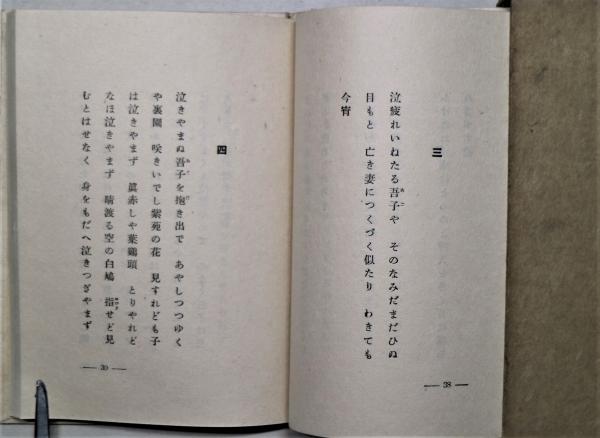 三
泣疲れいねたる吾子や そのなみだまだひぬ
目もと 亡き妻につくづく似たり わきても
今宵
— 38 —
四
泣きやまぬ吾子を抱き出で あやしつつゆく
や裏園 咲きいでし紫苑の花 見すれども子
は泣きやまず 眞赤しや葉鷄頭 とりやれど
なほ泣きやまず 晴渡る空の白鳩 指せど見
むとはせなく 身をもだへ泣きつぎやまず
— 39 —